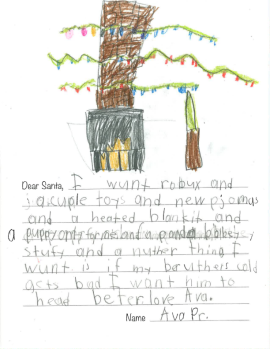 Dear Santa, I wunt robux and
a cuple toys and new pjomas
and a heated blankit and
a puppy only for me and a panda
stufy and a nuther thing I
wunt is if my bruthers cold
gets bad I want him to
head beter. love Ava.
Name Ava Pr.